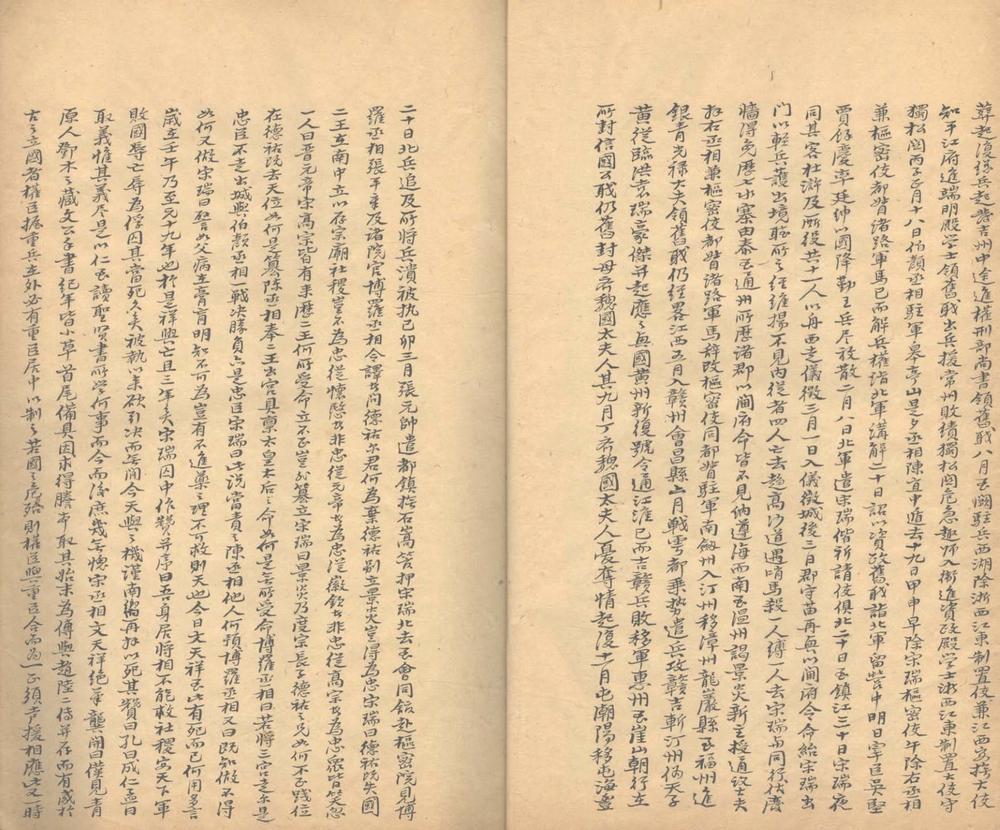 葬起復緣兵起發吉州中途進權刑部尚書領舊職八月至闕駐兵西湖除浙西江東制置使兼江西安撫大使
知平江府進端明殿學士領舊職出兵援常州敗績獨松關危急趣師入衛進資政殿學士浙西江東制置大使守
獨松關丙子正月十八日伯顏丞相駐軍皋亭山是夕丞相陳宜中遁去十九日甲申早除宋瑞樞密使午除右丞相
兼樞密使都督諸路軍馬已而解兵權詣北軍講解二十日詔以資政舊職詣北軍留營中明日宰臣吳堅
賈餘慶率廷紳以國降勤王兵盡放散二月八日北軍遣宋瑞偕祈請使俱北二十日至鎮江三十日宋瑞夜
同其客杜滸及所從共十一人以舟西走儀徵三月一日入儀徵城後三日郡守苗再無以閫府命令紿宋瑞出
門以輕兵護出境聽所之經維揚不見內從者四人亡去趨高沙道遇哨馬殺一人縛一人去宋瑞與同行伏廢
牆得免歷七水寨由泰至通州所歷諸郡以閫府命皆不見納遵海而南至溫州謁景炎新主授通議大夫
拜右丞相兼樞密使都督諸路軍馬辭改樞密使同都督駐軍南劍州入汀州移漳州龍巖縣至福州進
銀青光祿大夫領舊職仍經畧江西五月入贛州會昌縣六月戰雩都乘勢遣兵攻贛吉斬汀州偽天子
黃從臨洪袁瑞豪傑并起應之興國黃州新復號令通江淮已而吉贛兵敗移軍惠州至崖山朝行在
所封信國公職仍舊封母齊魏國太夫人其九月丁齊魏國太夫人憂奪情起復十一月屯潮陽移屯海豐
二十日北兵追及所將兵潰被執己卯三月張元帥遣都鎮撫石嵩管押宋瑞北去至會同館赴樞密院見博
羅丞相張平章及諸院官博羅丞相令譯者問德祐尔君何為棄德祐別立景炎豈得為忠宋瑞曰德祐既失國
二王立南中立以存宗廟社稷豈不為忠從懷愍者非忠從元帝者為忠從徽欽者非忠從高宗者為忠眾皆笑忽
一人曰晉元帝宋高宗皆有來歷二王何所受命立不正豈非篡立宋瑞曰景炎乃度宗長子德祐之兄如何不正踐位
在德祐既去天位如何是篡陳丞相奉二王出宮具稟太皇太后之命如何是無所受命博羅丞相曰若將三宮走尔是
忠臣不走出城與伯顏丞相一戰決勝負亦是忠臣宋瑞曰此說當責之陳丞相他人何預博羅丞相又曰既知做不得
如何又做宋瑞曰譬如父病在膏肓明知不可為豈有不進藥之理不可救則天也今日文天祥至此有死而已何用多言
歲在壬午乃至元十九年也於是祥興亡且三年矣宋瑞囚中作贊并序曰吾身居將相不能救社稷安天下軍
敗國辱亡辱為俘囚其當死久矣被執以來欲引決而無間今天與之機謹南向再拜以死其贊曰孔曰成仁孟曰
取義惟其義盡是以仁至讀聖賢書所學何事而今而後庶幾無愧宋丞相文天祥絕筆龔開曰僕見青
原人鄧木之藏文公手書紀年皆小草首尾備具因求得謄本取其始末為傳與趙陸二傳并存而有感於
古之立國者權臣握重兵在外必有重臣居中以制之若國之危殆則權臣與重臣合而為一正須聲援相應此又一時